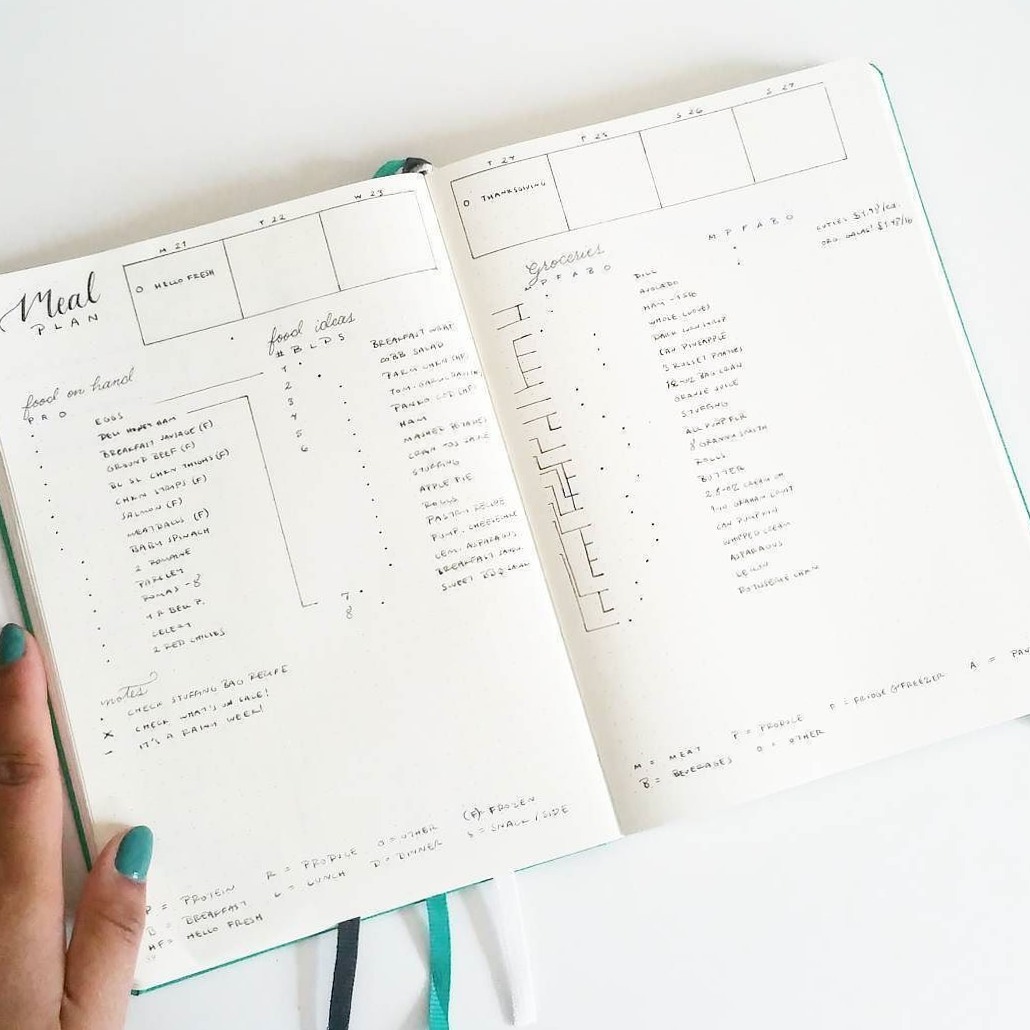 Meal
PLAN
M 21
T 22
W 23
O HELLO FRESH
food on hand
P R O
EGGS
DELI HONEY HAM
BREAKFAST SAUSAGE (F)
GROUND BEEF (F)
BL SL CHKN THIGHS (F)
CHKN STRIPS (F)
SALMON (F)
MEATBALLS (F)
BABY SPINACH
2 ROMAINE
PARSLEY
ROMAS - 8
1 R BELL P.
CELERY
2 RED CHILIES
notes
CHECK STUFFING BAG RECIPE
X CHECK WHAT'S ON SALE!
– IT'S A RAINY WEEK!
food ideas
# B L D S
1 BREAKFAST
2 COBB SALAD
3 PARM CHKN (HF)
4
5
6 HAM
MASHED POTATOES
STUFFING
APPLE PIE
ROLLS
PASTRY RECIPE
PUMP. CHEESECAKE
LEM. ASPARAGUS
7 BREAKFAST
8 SWEET BBQ
P = PROTEIN R = PRODUCE O = OTHER (F) = FROZEN
B = BREAKFAST L = LUNCH D = DINNER S = SNACK / SIDE
HF = HELLO FRESH
T 24
F 25
S 26
S 27
O THANKSGIVING
Groceries
M P F A B O
DILL
AVOCADO
HAM
WHOLE CLOVES
CAN PINEAPPLE
5 RUSSET POTATOES
12-OZ BAG CRAN
ORANGE JUICE
STUFFING
ALL PURP FLR
8 GRANNY SMITH
ROLLS
BUTTER
2 8-OZ CREAM CH
GRAHAM CRUST
CAN PUMPKIN
WHIPPED CREAM
ASPARAGUS
LEMON
ROTISSERIE CHKN
M P F A B O
CUTIES $1.98/EA.
ORG. GALAS! $1.48/lb
M = MEAT P = PRODUCE F = FRIDGE & FREEZER A = PAN
B = BEVERAGES O = OTHER